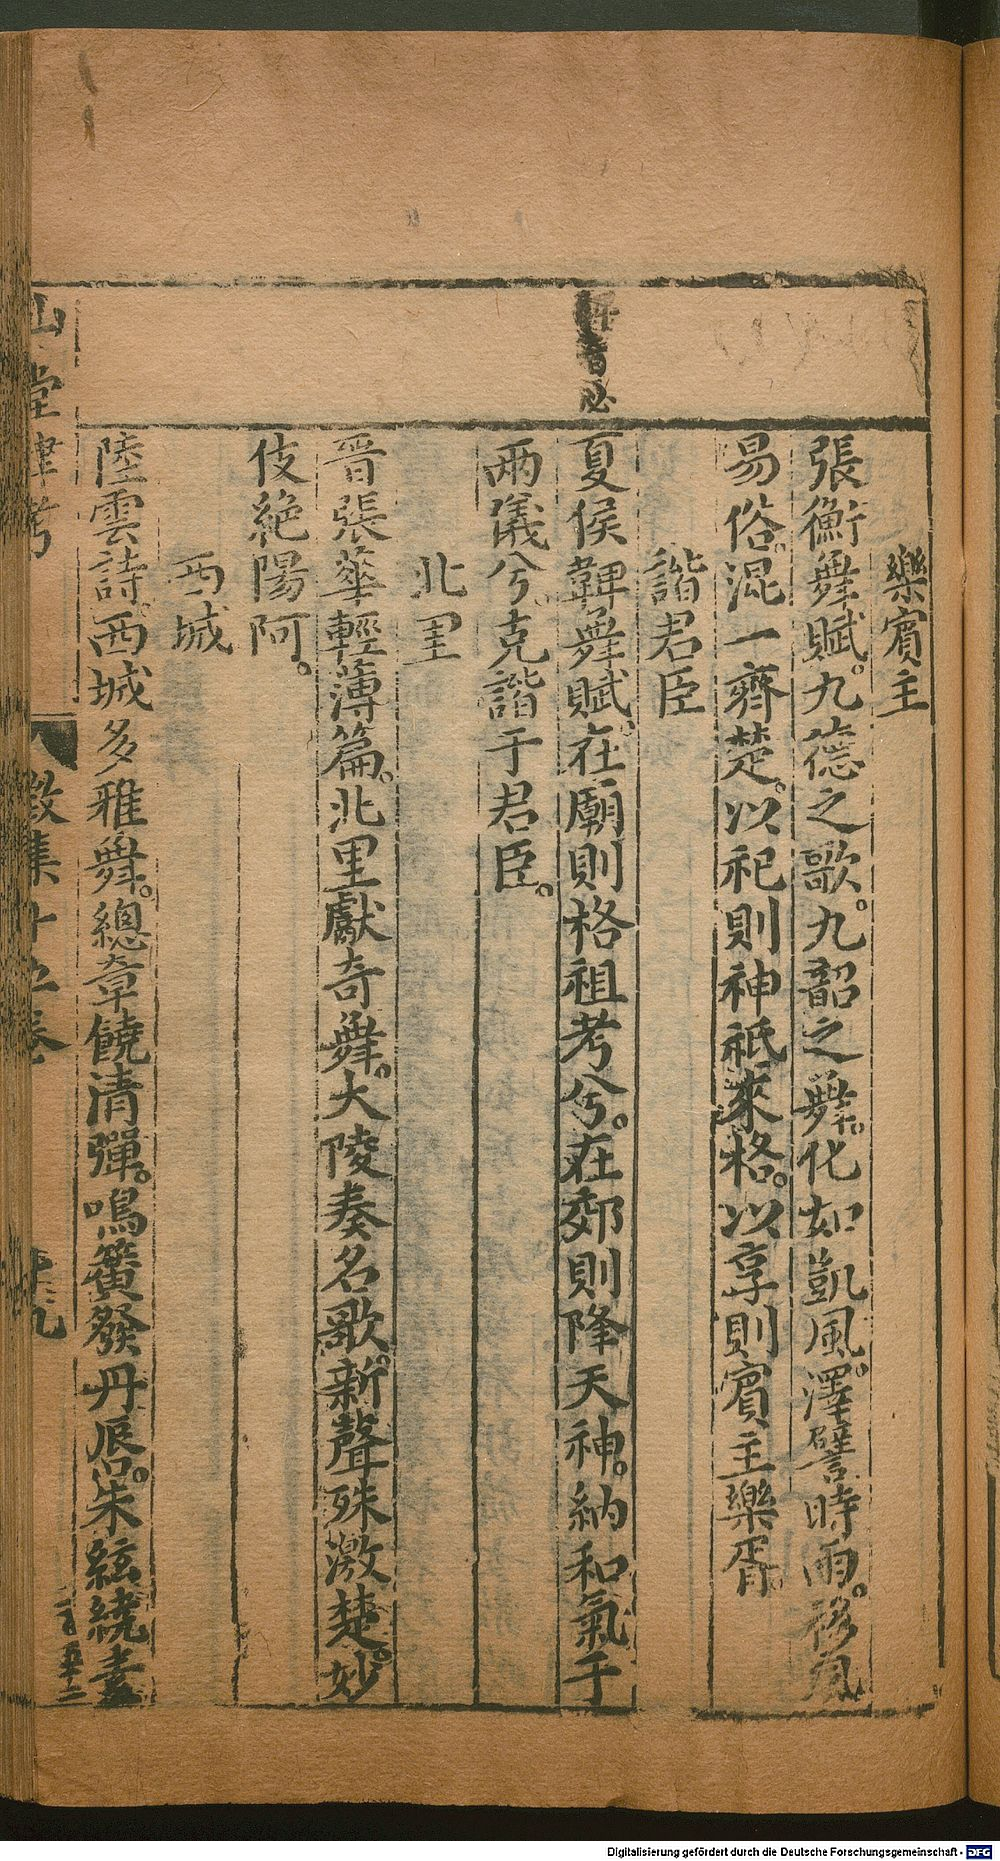 樂賓主
張衡舞賦。九德之歌。九韶之舞。化如凱風。澤譬時雨。移風
易俗。混一齊楚。以祀則神祇來格。以享則賓主樂胥。
諧君臣
鞞音必
夏侯鞞舞賦。在廟則格祖考兮。在郊則降天神。納和氣于
兩儀兮。克諧于君臣。
北里
晋張華輕薄篇。北里獻奇舞。大陵奏名歌。新聲殊激楚。妙
伎絶陽阿。
西城
陸雲詩西城多雅舞。總章饒清彈。鳴簧發丹唇。朱絃繞素
山堂肆考
徵集十五卷
Digitalisierung gefördert durch die Deutsche Forschungsgemeinschaft - DFG